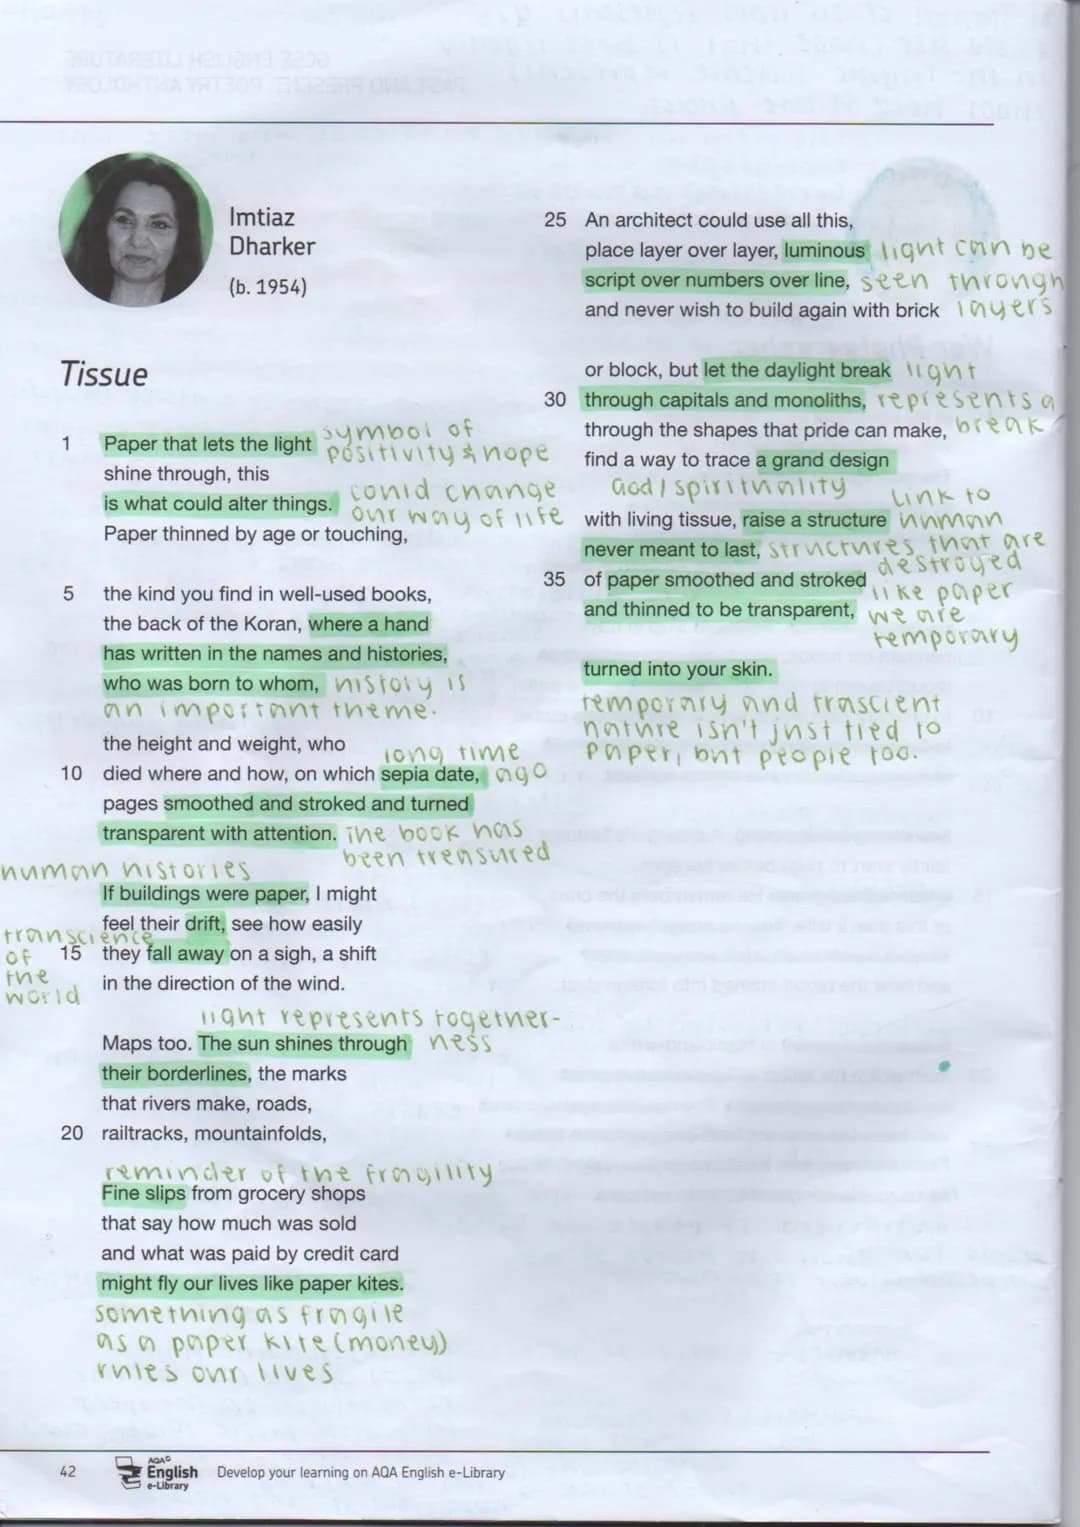 Imtiaz
Dharker
(b. 1954)
Tissue
1 Paper that lets the light symbol of
positivity & hope
shine through, this
is what could alter things. could change
our way of life
Paper thinned by age or touching,
5 the kind you find in well-used books,
the back of the Koran, where a hand
has written in the names and histories,
who was born to whom, history is
an important theme.
the height and weight, who
10 died where and how, on which sepia date, long time ago
pages smoothed and stroked and turned
transparent with attention. The book has
been treasured
human histories
If buildings were paper, I might
feel their drift, see how easily
transcience
of
the
world
15 they fall away on a sigh, a shift
in the direction of the wind.
light represents together-
ness
Maps too. The sun shines through
their borderlines, the marks
that rivers make, roads,
20 railtracks, mountainfolds,
reminder of the fragility
Fine slips from grocery shops
that say how much was sold
and what was paid by credit card
might fly our lives like paper kites.
something as fragile
as a paper kite (money)
rules our lives
25 An architect could use all this,
place layer over layer, luminous light can be
script over numbers over line, seen through
and never wish to build again with brick layers
or block, but let the daylight break light
30 through capitals and monoliths, represents a
through the shapes that pride can make, break
find a way to trace a grand design
God / spirituality
with living tissue, raise a structure Link to
human
never meant to last, structures that are
destroyed
35 of paper smoothed and stroked like paper
and thinned to be transparent, we are
temporary
turned into your skin.
temporary and trascient
nature isn't just tied to
paper, but people too.
42
AQA
English
e-Library
Develop your learning on AQA English e-Library